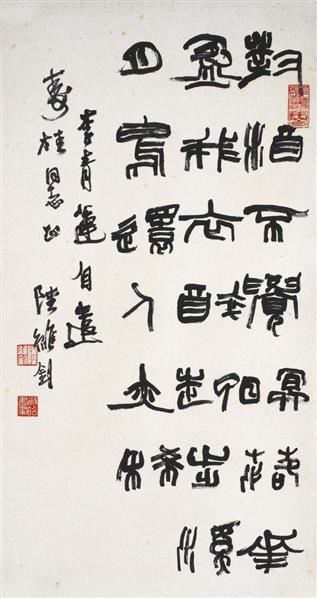 對酒不覺冥落花
盈我衣醉起步溪
月鳥還人亦稀
李青蓮自遣
壽桂同志正 陸維釗